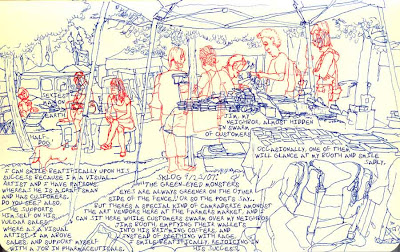 SEXIEST
MAN ON
EARTH
HALF
DOG
JIM, MY
NEIGHBOR, ALMOST HIDDEN
IN SWARM
OF CUSTOMERS
OCCASIONALLY, ONE OF THEM
WILL GLANCE AT MY BOOTH AND SMILE
SADLY.
I CAN SMILE BEATIFICALLY UPON HIS
SUCCESS BECAUSE I'M A VISUAL
ARTIST AND I HAVE PATRONS,
WHEREAS HE IS A CRAFTSMAN
AND HAS CUSTOMERS.
DO YOU SEE? ALSO,
HE SUPPORTS
HIMSELF ON HIS
VULGAR SALES
WHERE AS A VISUAL
ARTIST I AM ABOVE
SALES, AND SUPPORT MYSELF
WITH A JOB IN PHARMACEUTICALS.
SKLOG
THE GREEN-EYED MONSTER'S
EYES ARE ALWAYS GREENER ON THE OTHER
SIDE OF THE FENCE," OR SO THE POETS SAY.
BUT THERE'S A SPECIAL KIND OF CAMARADERIE AMONGST
THE ART VENDORS HERE AT THE FARMERS MARKET, AND I
CAN SIT HERE WHILE CUSTOMERS SWARM BY MY NEIGHBOR'S
BOOTH EMPTYING THEIR WALLETS
INTO HIS BRIMMING COFFERS, AND
INSTEAD OF SEETHING WITH RAGE,
I SMILE BEATIFICALLY, REJOICING IN
HIS SUCCESS.